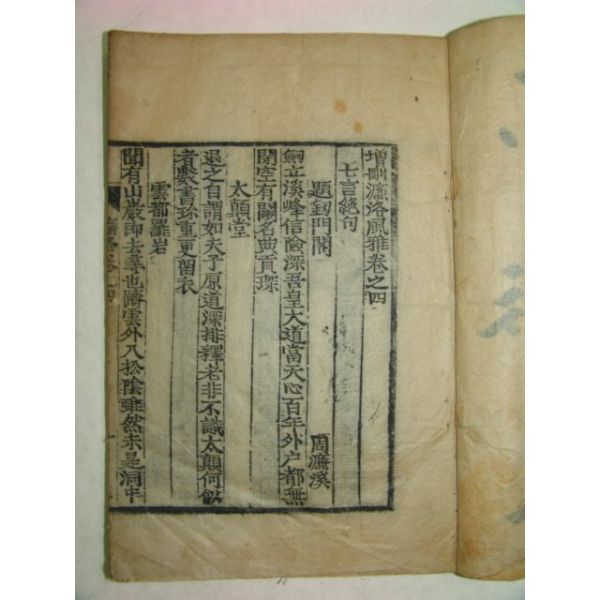 增刪濂洛風雅卷之四
七言絶句
題劒門關 周濂溪
劒立溪峰信險深吾皇大道當天心百年外户都無
閉空有關名典貢琛
太顛堂
退之自謂如夫子原道深排釋老非不識太顛何似
者數書珍重更留衣
雲都羅岩
聞有山巖即去尋也躋雲外入松陰雖然未是洞中